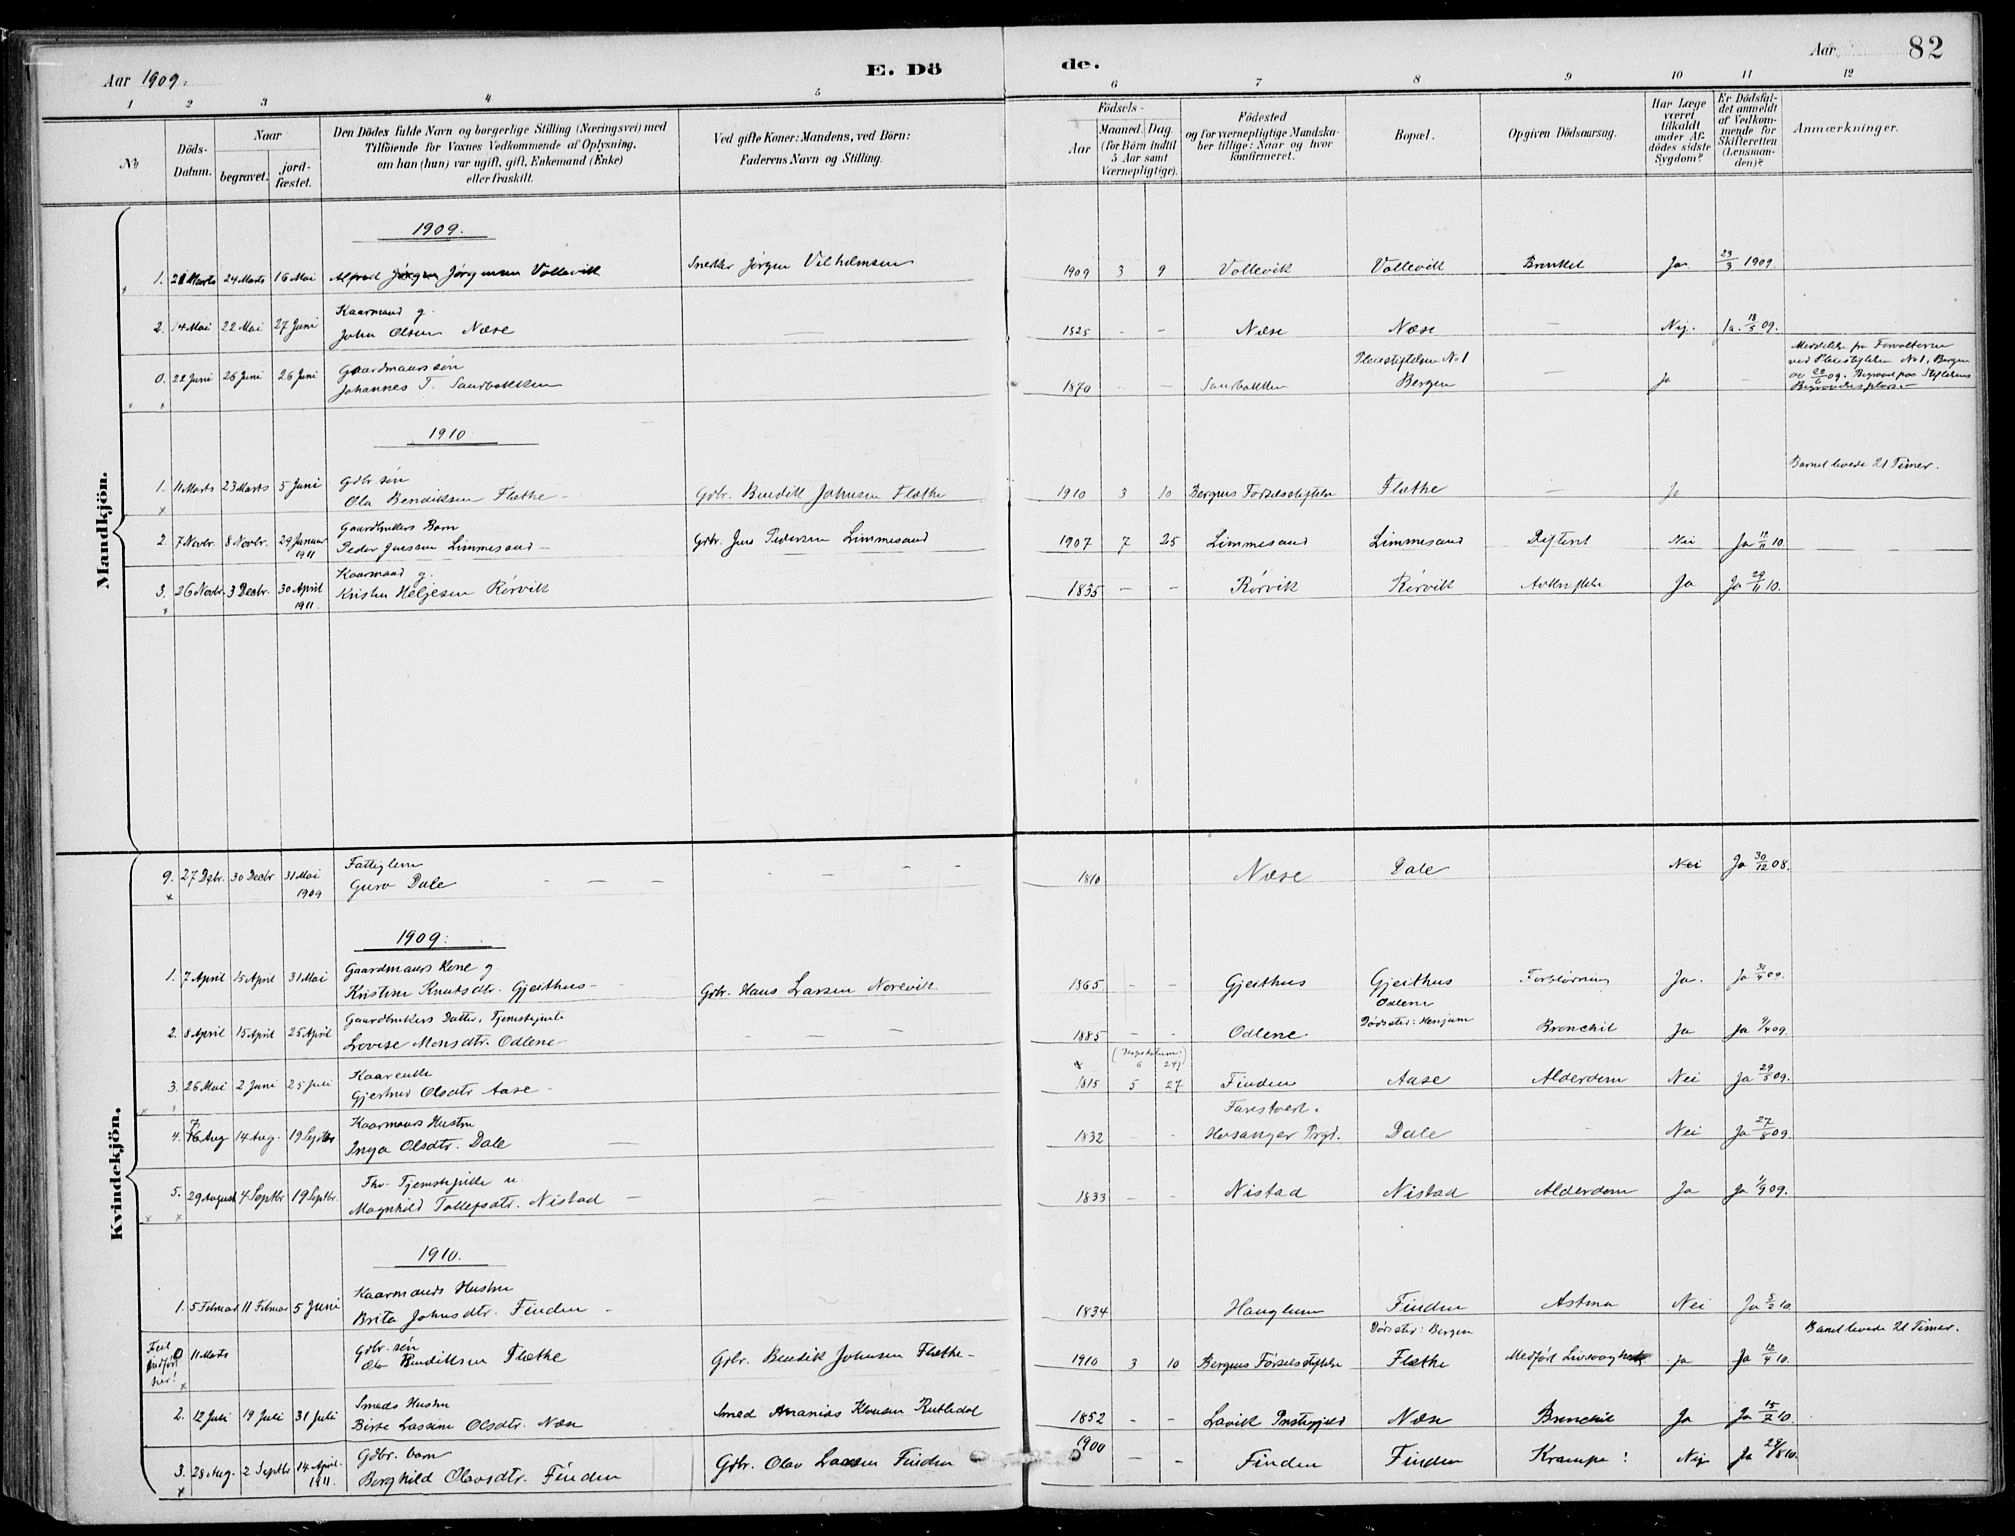 Aar 1909.
E. Dö
de.
Aar
82
1 2 3 4 5 6 7 8 9 10 11 12
No
Döds-Datum.
Naar
begravet.
jord-fæstet.
Den Dödes fulde Navn og borgerlige Stilling (Næringsvei) med
Tilföiende for Voxnes Vedkommende af Oplysning,
om han (hun) var ugift, gift, Enkemand (Enke)
eller fraskilt.
Ved gifte Koner: Mandens, ved Börn:
Faderens Navn og Stilling.
Födsels-
Aar
Maaned. Dag.
(for Börn indtil
5 Aar samt
Værnepligtige).
Födested
og for værnepligtige Mandska-
ber tillige: Naar og hvor
konfirmeret.
Bopæl.
Opgiven Dödsaarsag.
Har Læge
været
tilkaldt
under Af-
dödes sidste
Sygdom?
Er Dödsfal-
det anmeldt
af Vedkom-
mende for
Skifteretten
(Lensman-
den)?
Anmærkninger.
Mandkjön.
1909.
1. 21 Marts 24 Marts 16 Mai Alfred Jörgensen Vollevik Snekker Jörgen Vilhelmsen 1909 3 9 Vollevik Vollevik Bronkit Ja 23/3 1909.
Kaarmand g.
2. 14 Mai 22 Mai 27 Juni John Olsen Næse — 1825 - - Næse Næse — Nej. Ja. 18/5 09.
Gaardmanssön
0. 22 Juni 26 Juni 26 Juni Johannes T. Saurbakken 1870 — — Saurbakken Pleiestiftelsen No 1 Bergen — Ja —
Meddelelse fra Forvalteren
ved Pleiestiftelsen No 1, Bergen
Begravet paa Stiftelsens
Begravelsesplads.—
1910
Barnet levede 21 Timer.
Gdbr. sön
1. 11 Marts 23 Marts 5 Juni Ola Bendiksen Flæthe - Gdbr. Bendik Johnsen Flæthe 1910 3 10 Bergens Förselsstiftelse Flæthe — Ja
Gaardbrukers Barn
2. 7 Novbr. 8 Novbr. 29 Januar 1911 Peder Jensen Limmesand - Gdbr. Jens Pedersen Limmesand 1907 7 25 Limmesand Limmesand Difterit Nei Ja 12/11 10.
Kaarmand g.
3. 26 Novbr. 3 Decbr. 30 April 1911. Kristen Heljesen Rörvik 1835 — - Rörvik Rörvik Ja Ja 29/11 10.
Kvindekjön.
Fattiglem
9. 27 Dcbr. 30 Decbr 31 Mai 1909 Guro Dale - - - 1810 Næse Dale Nei Ja 30/12 08.
1909.
Gaardmans Kone g
1. 7 April 15 April 31 Mai Kristine Knutsdtr. Gjeithus - Gdbr. Hans Larsen Norevik 1865 - - Gjeithus Gjeithus Forblödning Ja. Ja
Gaardbrukers Datter, Tjenestepike
2. 8 April 15 April 25 April Lovise Monsdtr. Odlene 1885 - - Odlene Odlene Dödssted: Henjum Bronchit Ja Ja 9/4 09.
Kaarenke
3. 26 Mai 2 Juni 25 Juli Gjertrud Olsdtr Aase - 1815 5 27 Finden Aase Alderdom Nei Ja 29/5 09.
6 24
Kaarmans Hustru
4. 14 Aug. 19 Septbr Inga Olsdtr. Dale — 1832 - Hosanger Prgd. Dale - Nei Ja 27/8 09.
Fhv. Tjenestepike u.
5. 29 August 4 Septbr 19 Septbr. Magnhild Tollefsdtr. Nistad — 1833 - - Nistad Nistad Alderdom Ja Ja 1/9 09.
1910.
Kaarmands Hustru
1. 5 Februar 11 Februar 5 Juni Brita Johnsdtr. Finden - 1834 Hauglum Finden Astma Nei Ja 8/2 10.
Feil
indfört
her!
Dödssted: Bergen
Barnet levede 21 Timer.
Gdbr. sön
0 11 Marts Ola Bendiksen Flæthe Gdbr. Bendik Johnsen Flæthe - 1910 3 10 Bergens Förselsstiftelse Flæthe Medfört Ja Ja 12/4 10.
Smeds Hustru
2. 12 Juli 19 Juli 31 Juli Birte Lassine Olsdtr. Næse Smed Ananias Klausen Rutledal 1852 - - Lavik Prestegjeld Næse Bronchit Ja Ja 15/7 10.
Gdbr. barn
3. 28 Aug. 2 Septbr 14 April 1911. Borghild Olavsdtr. Finden Gdbr. Olav Lassen Finden 1900 — - Finden Finden Krampe Nej Ja 29/8 10.